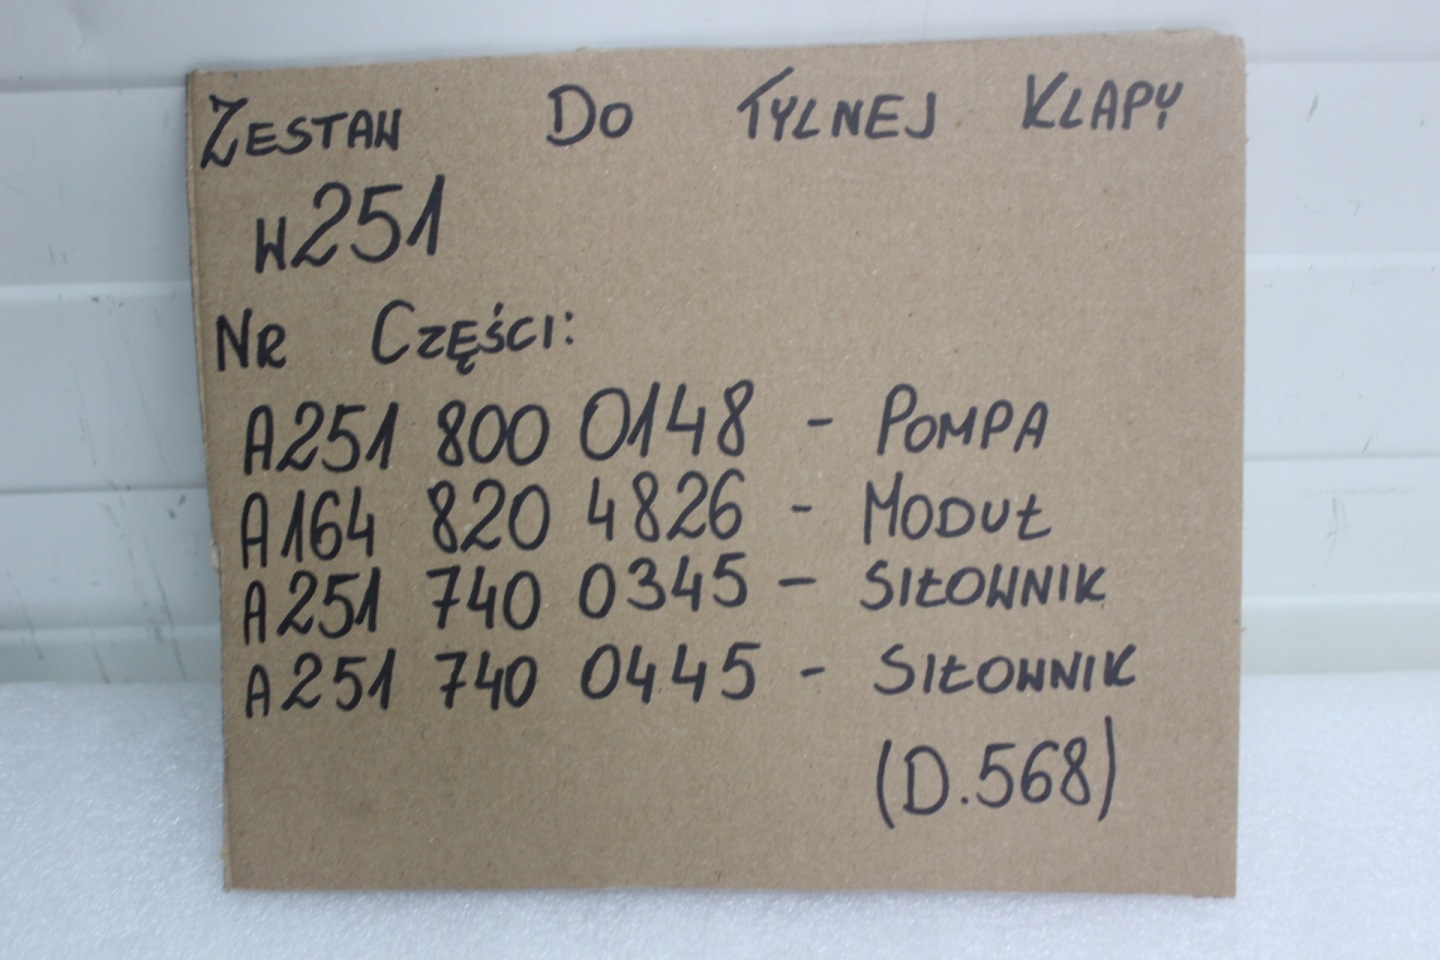 ZESTAW DO TYLNEJ KLAPY
W251
NR CZĘŚCI:
A251 800 0148 - POMPA
A164 820 4826 - MODUŁ
A251 740 0345 - SIŁOWNIK
A251 740 0445 - SIŁOWNIK
(D.568)